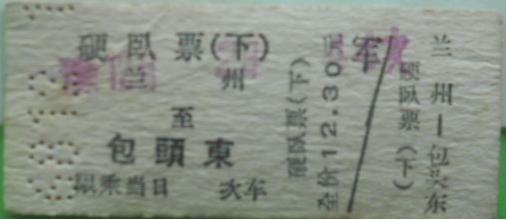 硬臥票(下)
兰州
至
包頭東
限乘当日 次车
硬臥票(下)
全价12.30元
军
兰州—包头东
硬臥票(下)